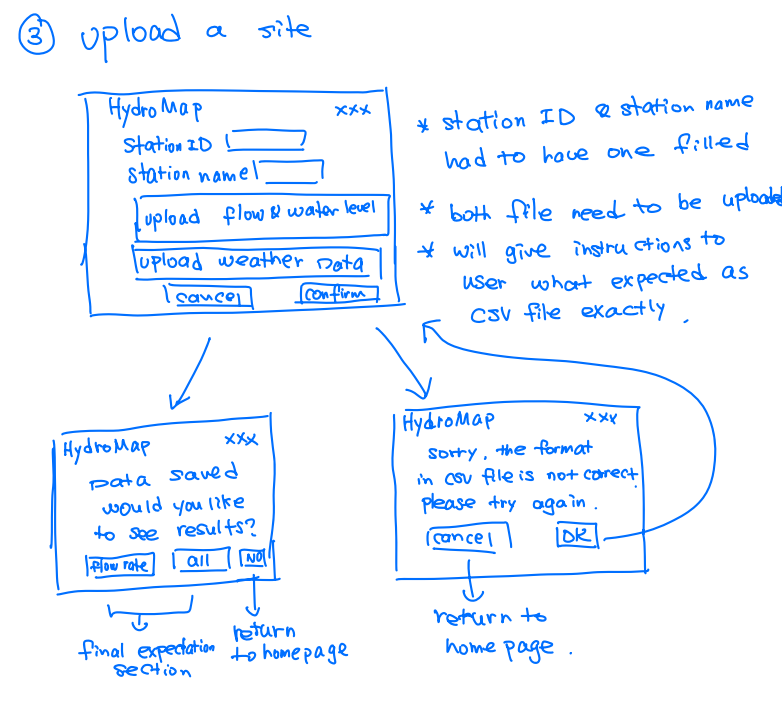 ③ upload a site
HydroMap xxx
Station ID
station name
upload flow & water level
upload weather Data
cancel confirm
* station ID & station name
had to have one filled
* both file need to be uploaded
* will give instructions to
user what expected as
CSV file exactly.
HydroMap xxx
Data saved
would you like
to see results?
flow rate all NO
final expectation
section
return
to homepage
HydroMap xxx
sorry, the format
in csv file is not correct
please try again.
cancel OK
return to
home page.